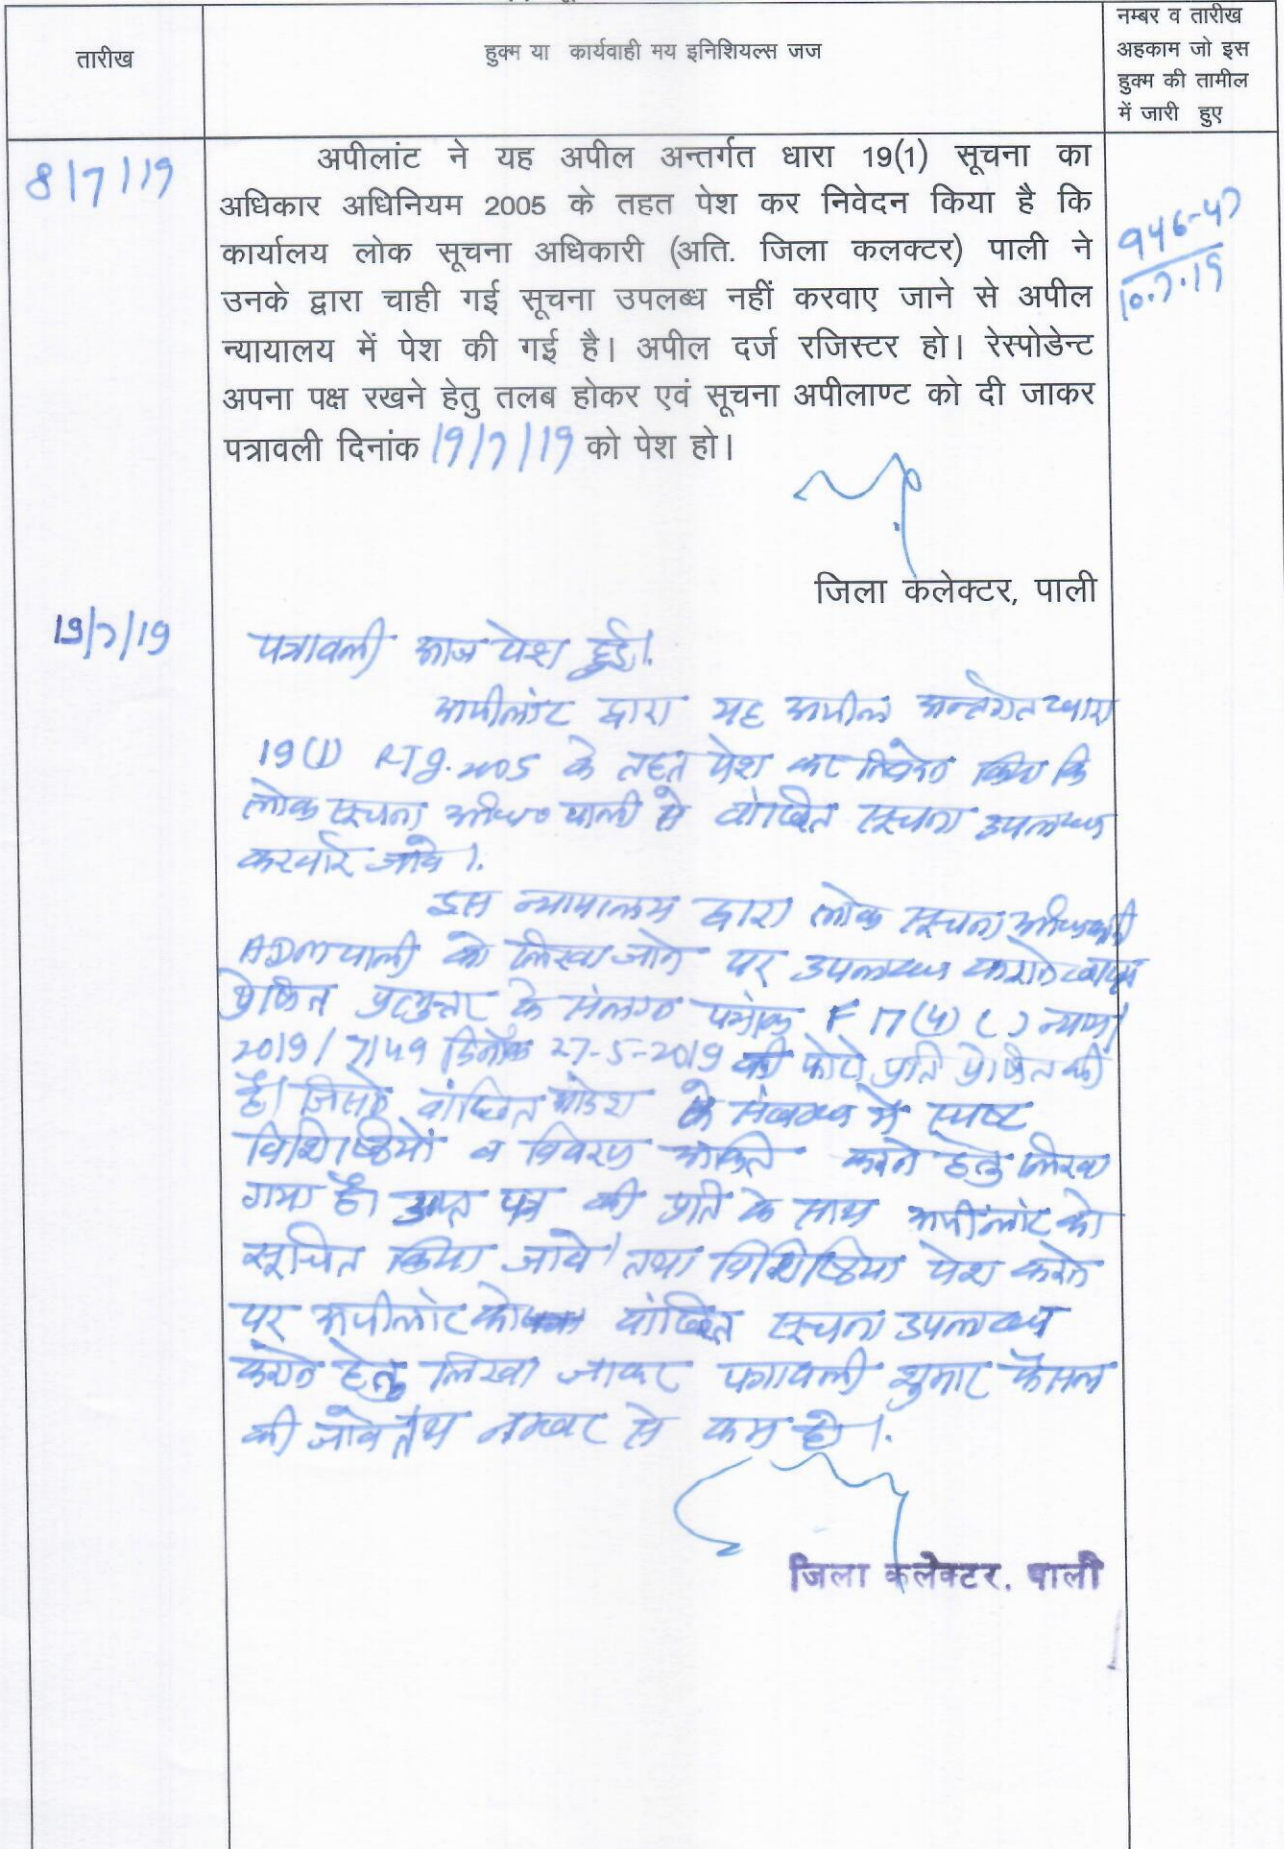 तारीख
हुक्म या कार्यवाही मय इनिशियल्स जज
नम्बर व तारीख
अहकाम जो इस
हुक्म की तामील
में जारी हुए
8/7/19
अपीलांट ने यह अपील अन्तर्गत धारा 19(1) सूचना का
अधिकार अधिनियम 2005 के तहत पेश कर निवेदन किया है कि
कार्यालय लोक सूचना अधिकारी (अति. जिला कलक्टर) पाली ने
उनके द्वारा चाही गई सूचना उपलब्ध नहीं करवाए जाने से अपील
न्यायालय में पेश की गई है। अपील दर्ज रजिस्टर हो। रेस्पोडेन्ट
अपना पक्ष रखने हेतु तलब होकर एवं सूचना अपीलाण्ट को दी जाकर
पत्रावली दिनांक 19/7/19 को पेश हो।
946-47
10.7.19
जिला कलेक्टर, पाली
19/7/19
पत्रावली आज पेश हुई।
अपीलांट द्वारा यह अपील अन्तर्गत धारा
19(1) के तहत पेश कर निवेदन किया कि
लोक सूचना पाली से वांछित सूचना उपलब्ध
करवाई जावे।
इस न्यायालय द्वारा लोक सूचना अधिकारी
ADM पाली को लिखा जाने पर उपलब्ध
प्रेषित प्रत्युत्तर के संलग्न पत्रांक F 17(4) ( ) न्याय/
2019/7149 दिनांक 27-5-2019 की फोटो प्रति प्रेषित की
है। जिसमें वांछित आदेश के संबन्ध में स्पष्ट
विशिष्ठियों व विवरण अंकित करने हेतु लिखा
गया है। उक्त पत्र की प्रति के साथ अपीलांट को
सूचित किया जावे तथा विशिष्ठियां पेश करने
पर अपीलांट को वांछित सूचना उपलब्ध
कराने हेतु लिखा जाकर पत्रावली शुमार फैसल
की जावे तथा नम्बर से कम हो।
जिला कलेक्टर, पाली